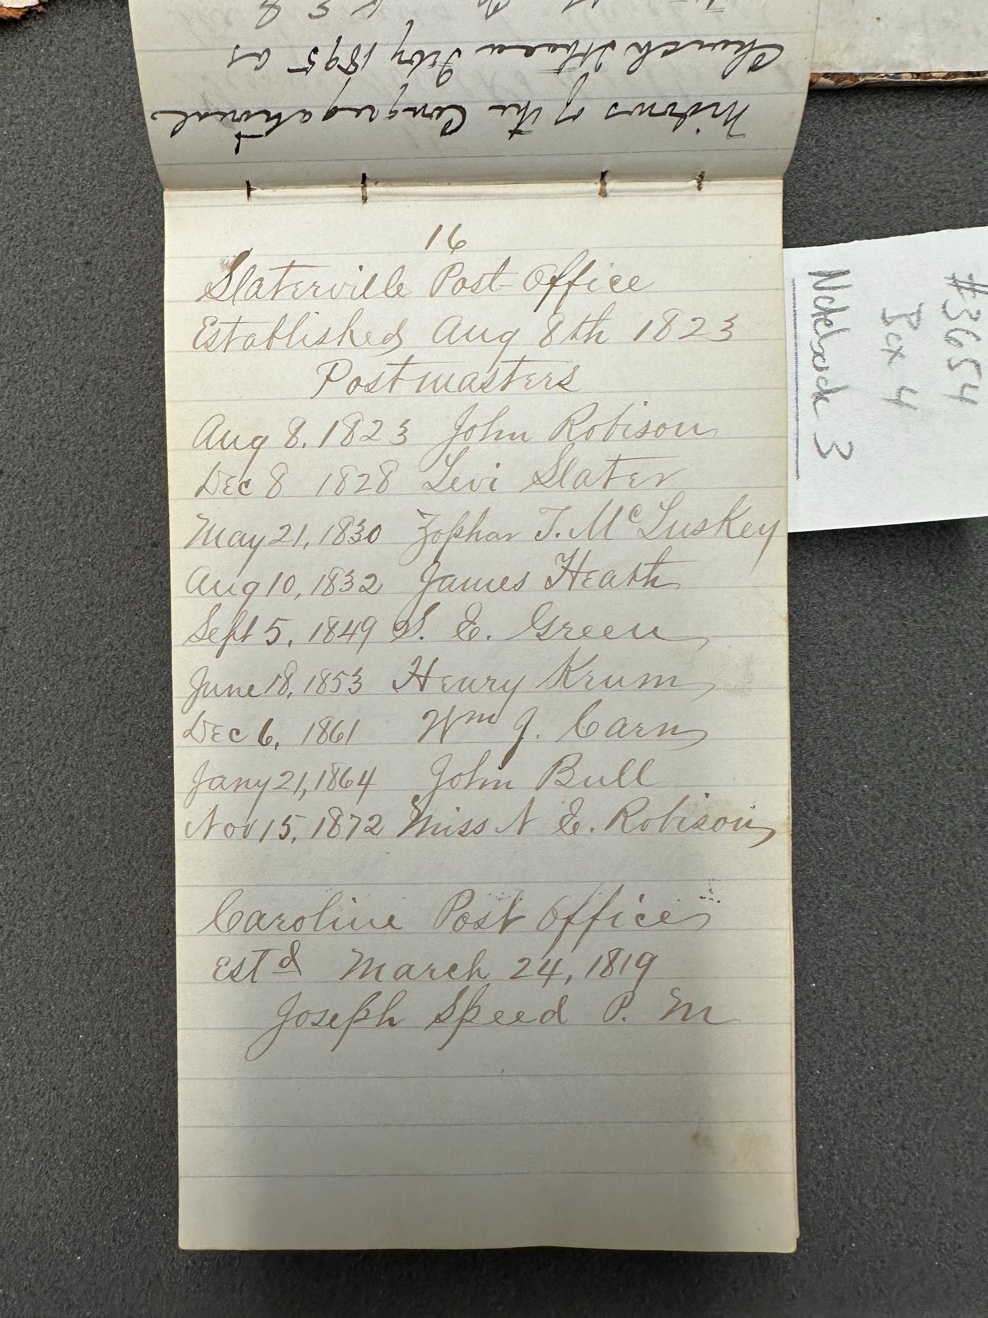 Widows of the Congregational
Church Ithaca Feby 1895 as
16
Slaterville Post Office
Established Aug 8th 1823
Postmasters
Aug 8. 1823 John Robison
Dec 8 1828 Levi Slater
May 21, 1830 Zophar T. McLuskey
Aug 10, 1832 James Heath
Sept 5, 1849 S. E. Green
June 18, 1853 Henry Krum
Dec 6, 1861 Wm J. Carns
Jany 21, 1864 John Bull
Nov 15, 1872 Miss N E. Robison
Caroline Post Office
Estd March 24, 1819
Joseph Speed P. M
#3654
Box 4
Notebook 3